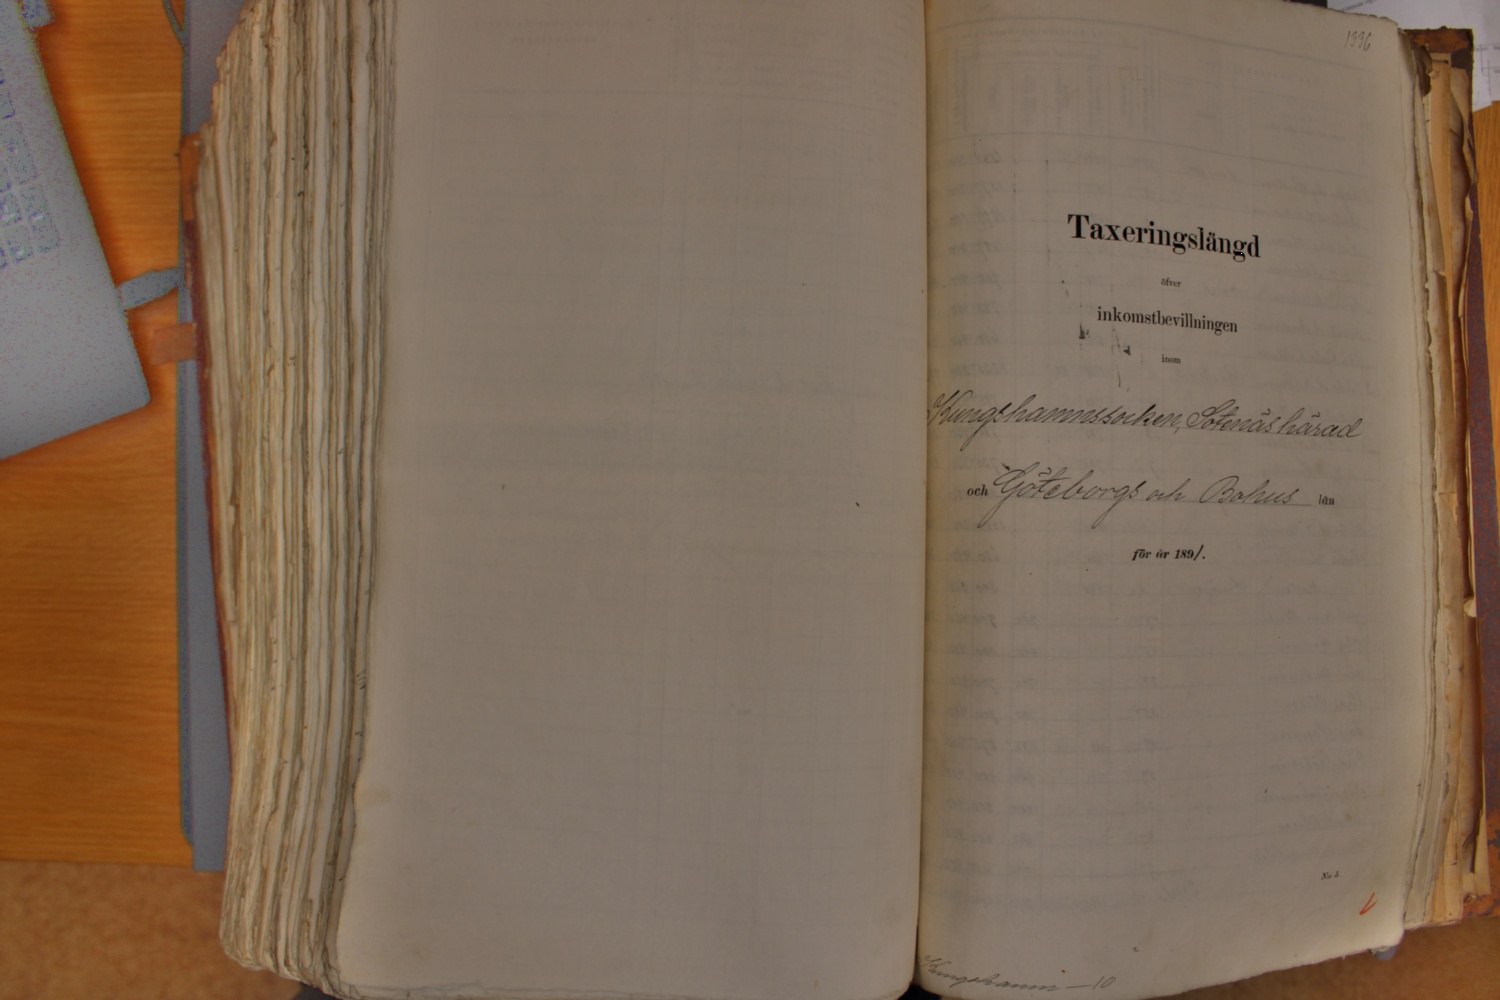 1336
Taxeringslängd
öfver
inkomstbevillningen
inom
Kungshamns socken, Sotenäs härad
och Göteborgs och Bohus län
för år 1891.
No 5.
Kungshamn — 10